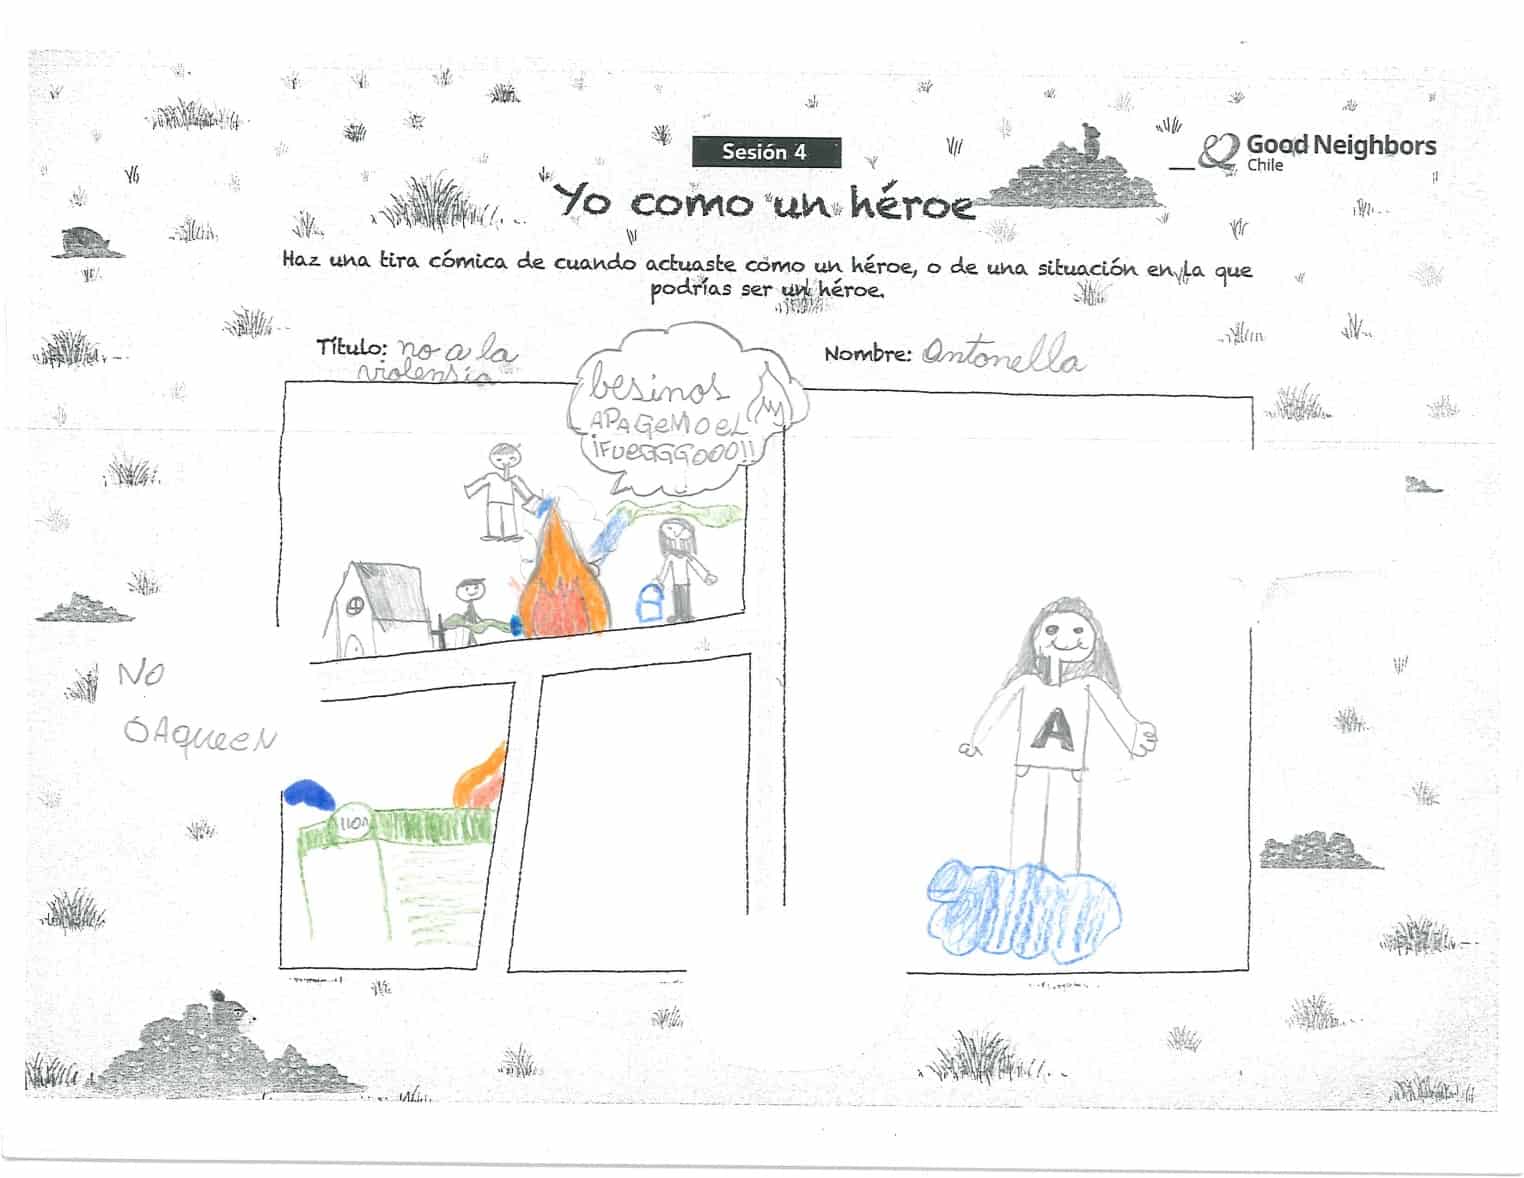 Sesión 4
Good Neighbors
Chile
Yo como un héroe
Haz una tira cómica de cuando actuaste como un héroe, o de una situación en la que
podrías ser un héroe.
Título: no a la
violensia
Nombre: Antonella
besinos
APAGEMOEL
¡FUEGGGOOO!!
A
NO
SAQUEEN